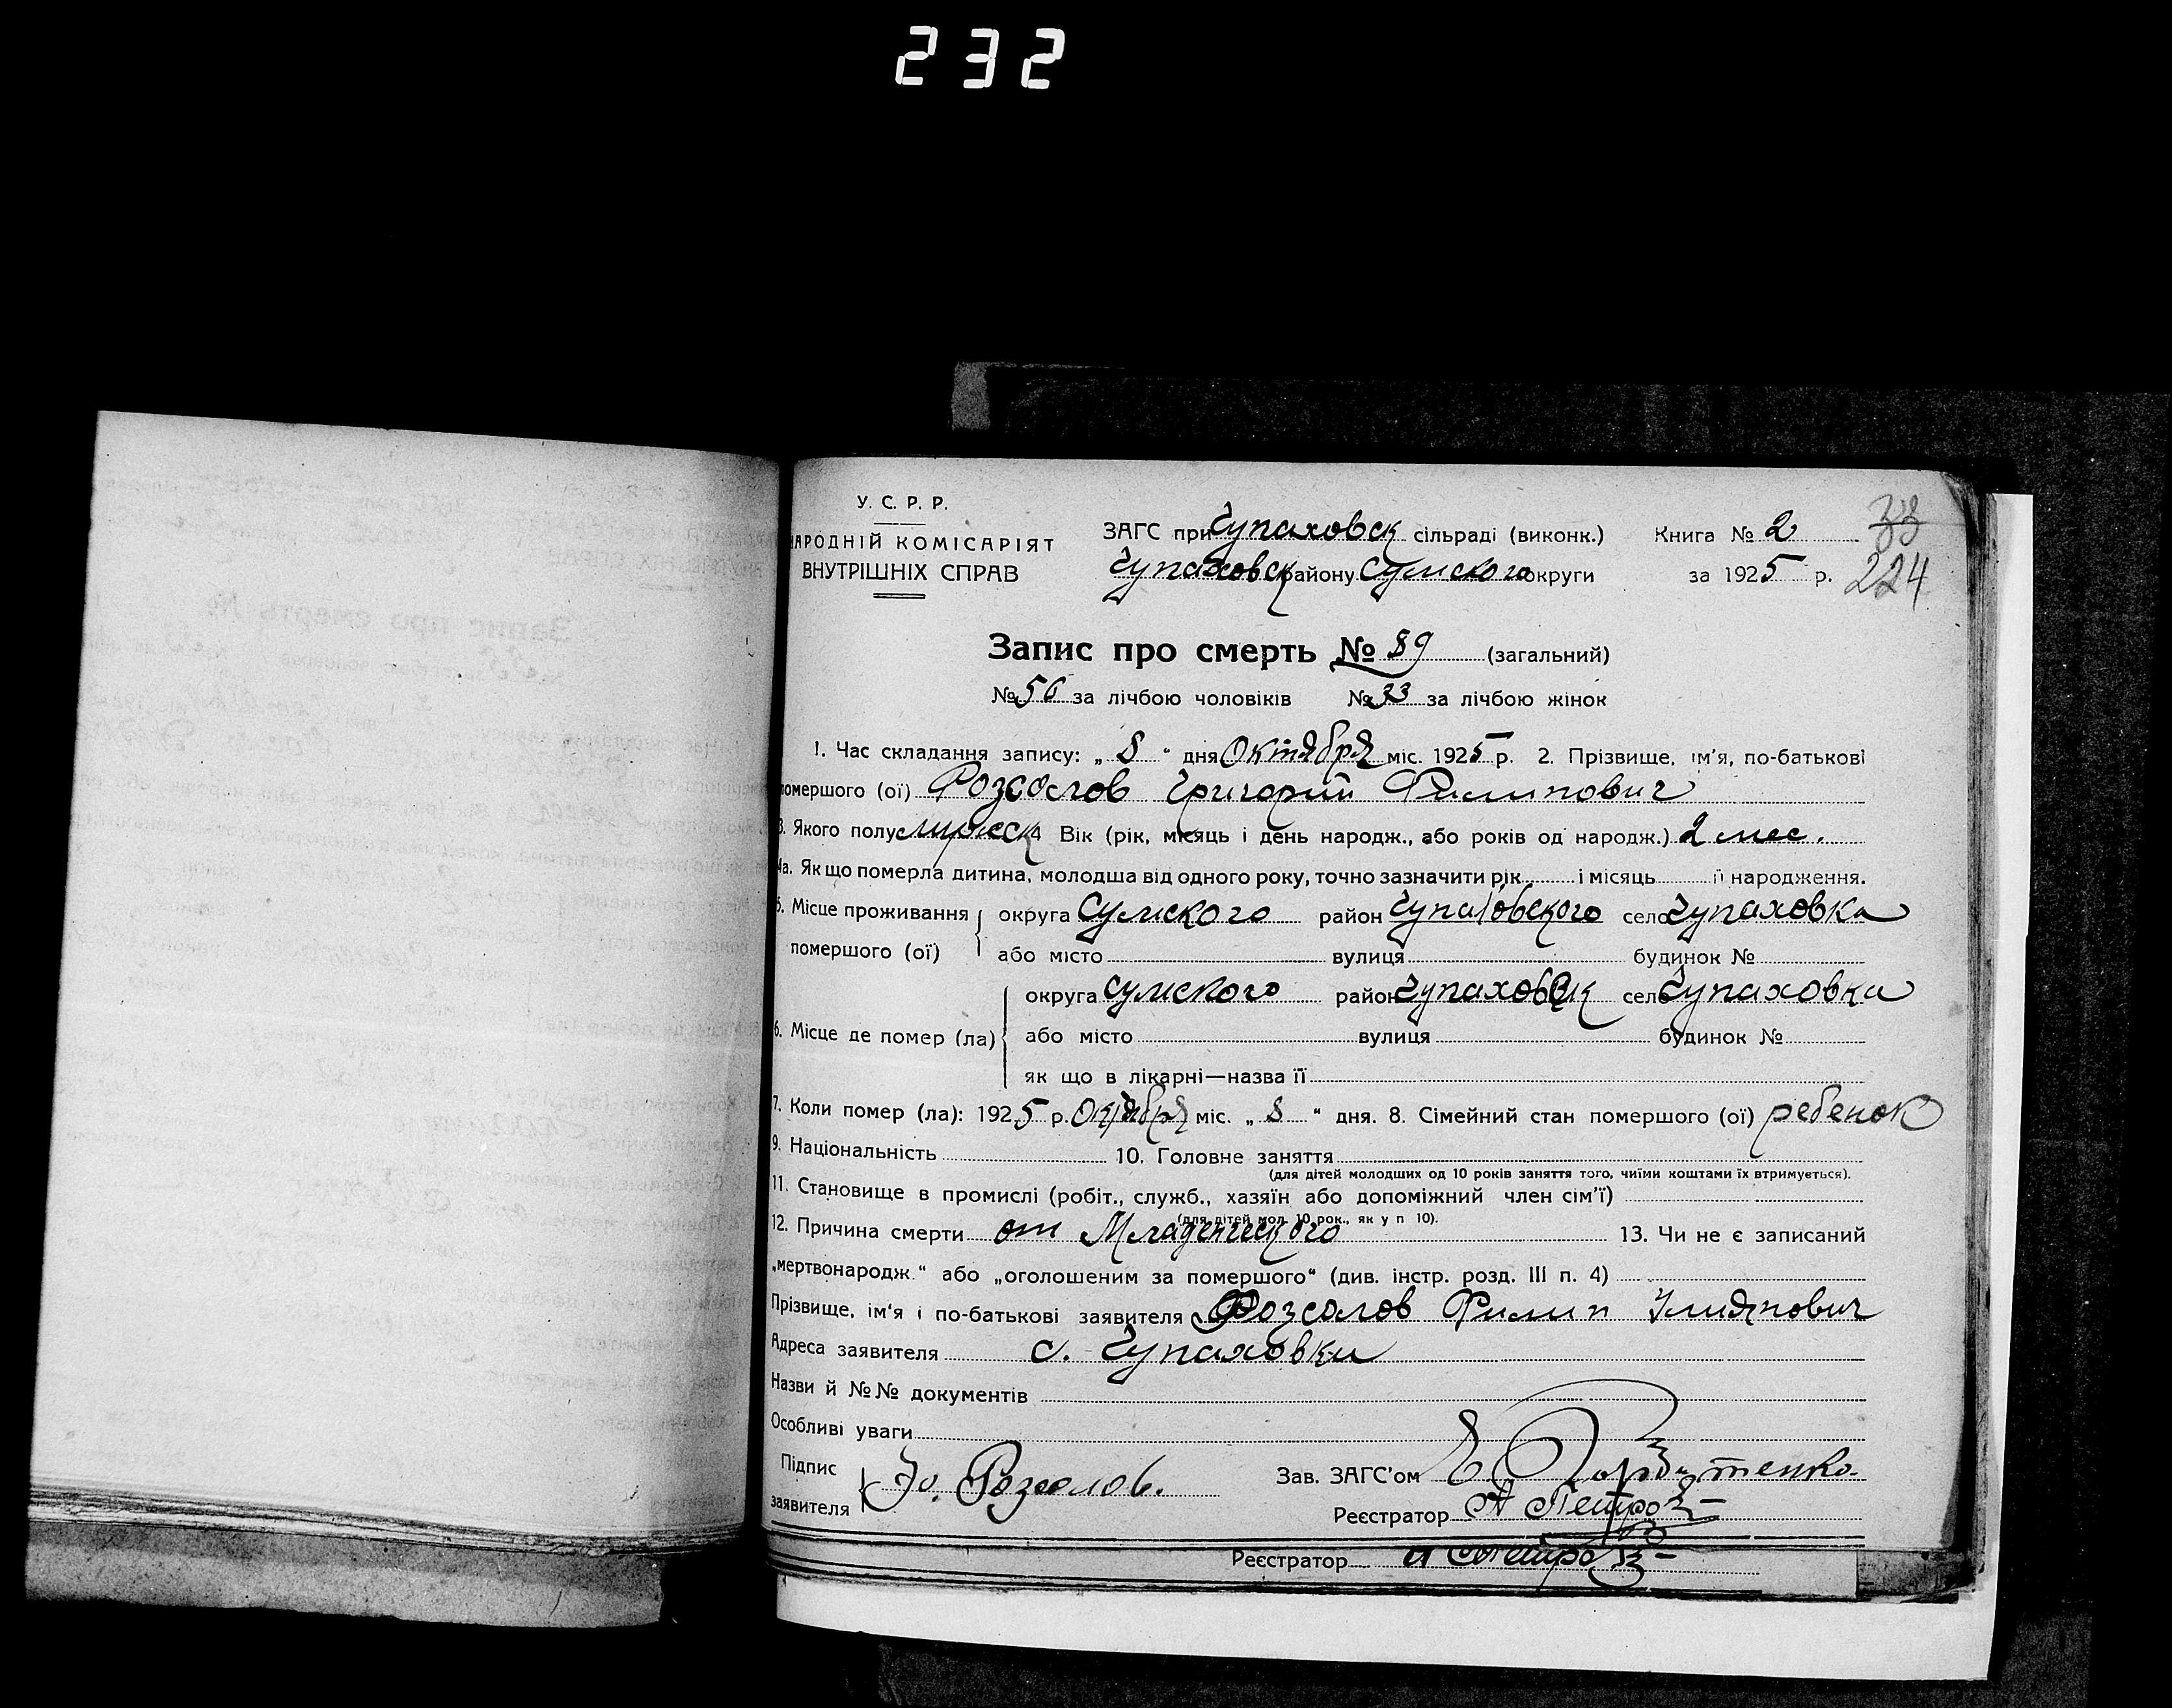 232
У. С. Р. Р.
НАРОДНІЙ КОМІСАРІЯТ
ВНУТРІШНІХ СПРАВ
ЗАГС при Чупаховск сільраді (виконк.)
Чупаховск району Сумского округи
Книга № 2
за 1925 р.
33
224
Запис про смерть № 89 (загальний)
№ 56 за лічбою чоловіків № 33 за лічбою жінок
1. Час складання запису: „ 8 “ дня Октября міс. 1925 р. 2. Прізвище, ім'я, по-батькові
помершого (ої) Розсолов Григорий Филипович
3. Якого полу мужеск 4 Вік (рік, місяць і день народж., або років од народж.) 2 мес.
4а. Як що померла дитина, молодша від одного року, точно зазначити рік і місяць її народження.
5. Місце проживання помершого (ої) округа Сумского район Чупаховского село Чупаховка
або місто вулиця будинок №
6. Місце де помер (ла) округа Сумского район Чупаховск село Чупаховка
або місто вулиця будинок №
як що в лікарні—назва її
7. Коли помер (ла): 1925 р. Октября міс. „ 8 “ дня. 8. Сімейний стан помершого (ої) ребенок
9. Національність 10. Головне заняття
(для дітей молодших од 10 років заняття того, чиїми коштами їх втримується).
11. Становище в промислі (робіт., служб., хазяїн або допоміжний член сім'ї)
(для дітей мол. 10 рок., як у п 10).
12. Причина смерти от Младенческого 13. Чи не є записаний
„мертвонародж.“ або „оголошеним за помершого“ (див. інстр. розд. III п. 4)
Прізвище, ім'я і по-батькові заявителя Розсолов Филип
Адреса заявителя с. Чупаховки
Назви й №№ документів
Особливі уваги
Підпис заявителя Розсолов.
Зав. ЗАГС'ом
Реєстратор А Петров
Реєстратор